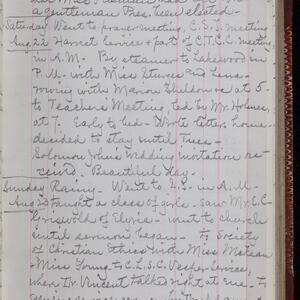 a gentleman Pres. been elected.
Saturday Went to prayer meeting, C.S.S. meeting
Aug 22 Harvest Service & part of C.T.C.C. meeting,
in A.M. By steamer to Lakewood in
P.M. with Miss Sturges and Lena.
Rowing with Marion Sheldon & at 5-
to Teacher's Meeting, led by Mr. Holmes,
at 7. Early to bed. Wrote letters home.
decided to stay until Tues.
Solomon Johns Wedding invitation re-
ceived. Beautiful day.
Sunday Rainy. Went to S.S. in A.M.
Aug 23 taught a class of girls. Saw Mr. E.C.
Griswold of Elyria. went to church
until sermon began to Society
of Christian Ethics with Miss McLean
Miss Young to C.L.S.C. Vesper Services,
when Dr. Vincent talked right at me. to